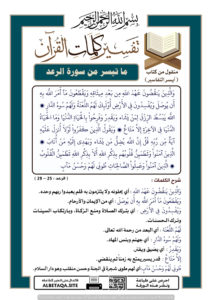 بسم الله الرحمن الرحيم
تفسير كلمات القرآن
منقول من كتاب
( أيسر التفاسير )
ما تيسر من سورة الرعد
وَالَّذِينَ يَنْقُضُونَ عَهْدَ اللَّهِ مِنْ بَعْدِ مِيثَاقِهِ وَيَقْطَعُونَ مَا أَمَرَ اللَّهُ بِهِ
أَنْ يُوصَلَ وَيُفْسِدُونَ فِي الْأَرْضِ أُولَئِكَ لَهُمُ اللَّعْنَةُ وَلَهُمْ سُوءُ الدَّارِ
اللَّهُ يَبْسُطُ الرِّزْقَ لِمَنْ يَشَاءُ وَيَقْدِرُ وَفَرِحُوا بِالْحَيَاةِ الدُّنْيَا وَمَا الْحَيَاةُ
الدُّنْيَا فِي الْآخِرَةِ إِلَّا مَتَاعٌ وَيَقُولُ الَّذِينَ كَفَرُوا لَوْلَا أُنْزِلَ عَلَيْهِ
آيَةٌ مِنْ رَبِّهِ قُلْ إِنَّ اللَّهَ يُضِلُّ مَنْ يَشَاءُ وَيَهْدِي إِلَيْهِ مَنْ أَنَابَ
الَّذِينَ آمَنُوا وَتَطْمَئِنُّ قُلُوبُهُمْ بِذِكْرِ اللَّهِ أَلَا بِذِكْرِ اللَّهِ تَطْمَئِنُّ الْقُلُوبُ
الَّذِينَ آمَنُوا وَعَمِلُوا الصَّالِحَاتِ طُوبَى لَهُمْ وَحُسْنُ مَآبٍ
( الرعد : 25 - 29 )
شرح الكلمات :
يَنْقُضُونَ عَهْدَ اللَّهِ : أي
وَيَقْطَعُونَ مَا أَمَرَ اللَّهُ بِهِ أَنْ يُوصَلَ : أي من الإيمان والأرحام.
وَيُفْسِدُونَ فِي الْأَرْضِ : أي بترك الصلاة ومنع الزكاة، وبارتكاب السيئات
وترك الحسنات.
لَهُمُ اللَّعْنَةُ : أي البعد من رحمة الله تعالى.
وَلَهُمْ سُوءُ الدَّارِ : أي جهنم وبئس المهاد.
وَيَقْدِرُ : أي يضيق ويقتر.
إِلَّا مَتَاعٌ : قدر يسير يتمتع به زمنا ثم ينقضي.
طُوبَى لَهُمْ وَحُسْنُ مَآبٍ : أي لهم طوبى شجرة في الجنة وحسن منقلب وهو دار السلام.
ALBETAQA.SITE
ALBETAQA.SITE